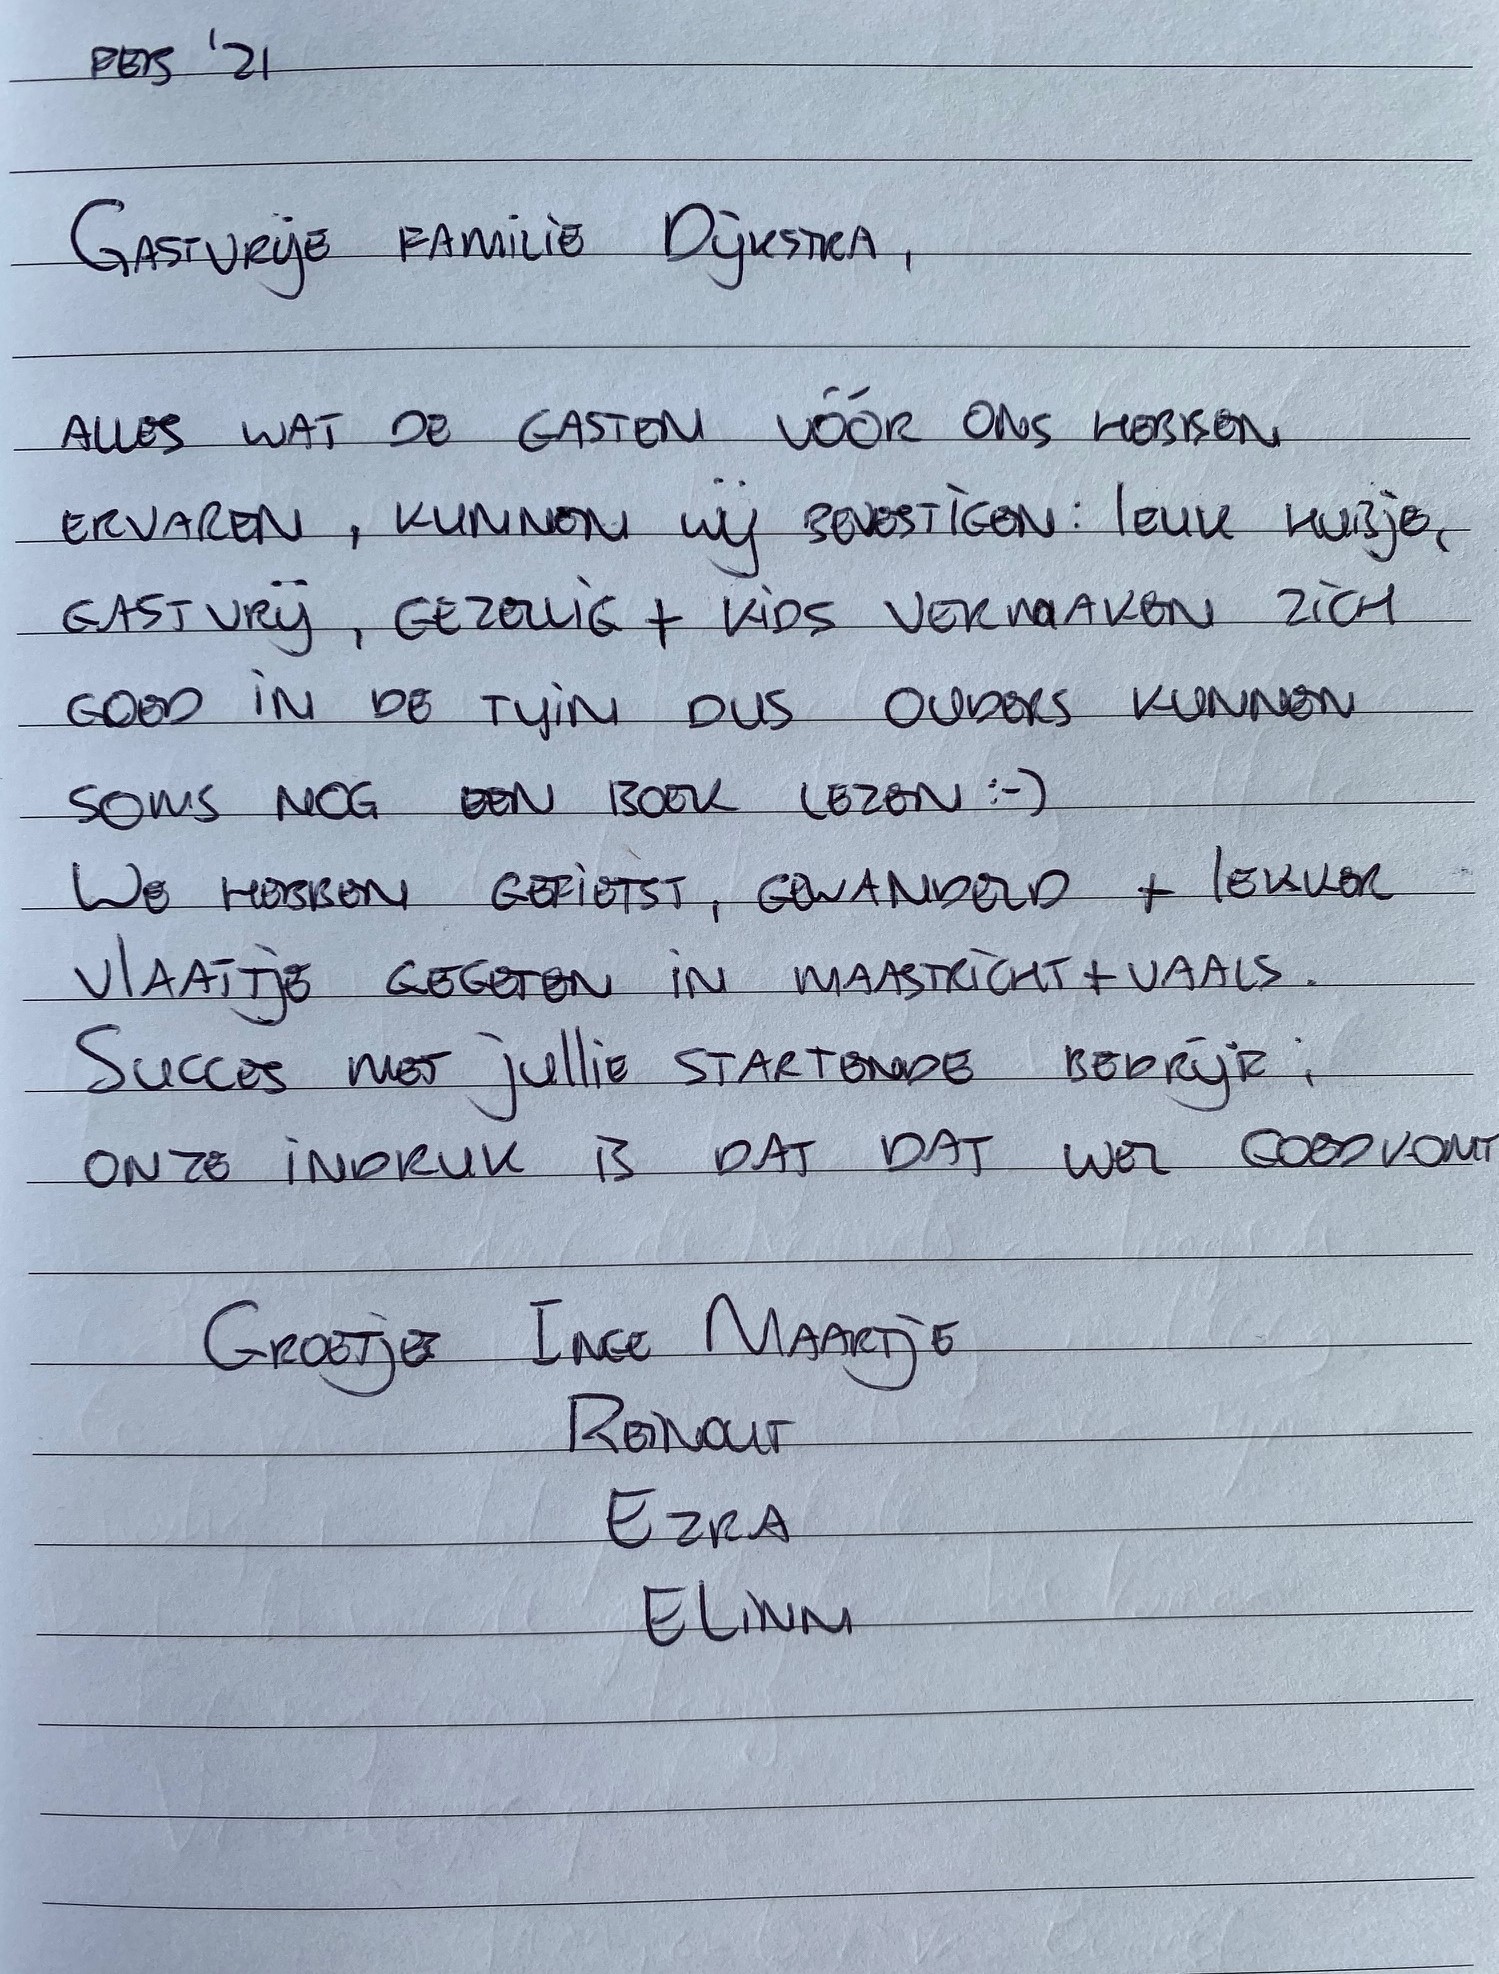 FEB '21
GASTVRIJE FAMILIE DIJKSTRA,
ALLES WAT DE GASTEN VÓÓR ONS HEBBEN
ERVAREN, KUNNEN WIJ BEVESTIGEN: leuk HUISJE,
GASTVRIJ, GEZELLIG + KIDS VERMAKEN ZICH
GOED IN DE TUIN DUS OUDERS KUNNEN
SOMS NOG EEN BOEK LEZEN :-)
WE HEBBEN GEFIETST, GEWANDELD + lEKKER
VlAAITJE GEGETEN IN MAASTRICHT + VAALS.
SUCCES MET jullie STARTENDE BEDRIJF;
ONZE INDRUK IS DAT DAT WEL GOEDKOMT
GROETJES INGE MAARTJE
REINOUT
EZRA
ELINN